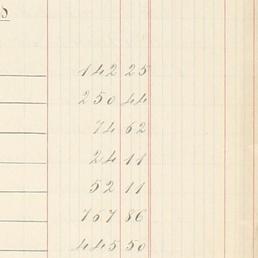 142 25
250 44
74 62
24 11
52 11
767 86
445 50